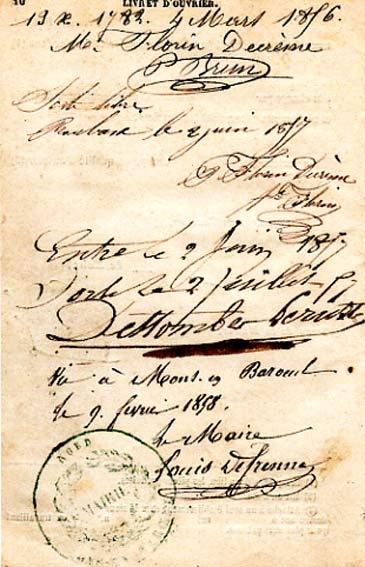 10
LIVRET D'OUVRIER.
13 x. 1783. 4 Mars 1856.
Mr Florin Decrême
P Brun
Sorti libre
Roubaix le 2 juin 1857
P Florin Decrême
Florin
Entré le 2 Juin 1857
Sorti le 2 Juillet 57
Destombes
Vu à Mons en Baroeul
le 9. fevrie 1858.
Le Maire
Louis Defrenne
NORD
MAIRIE